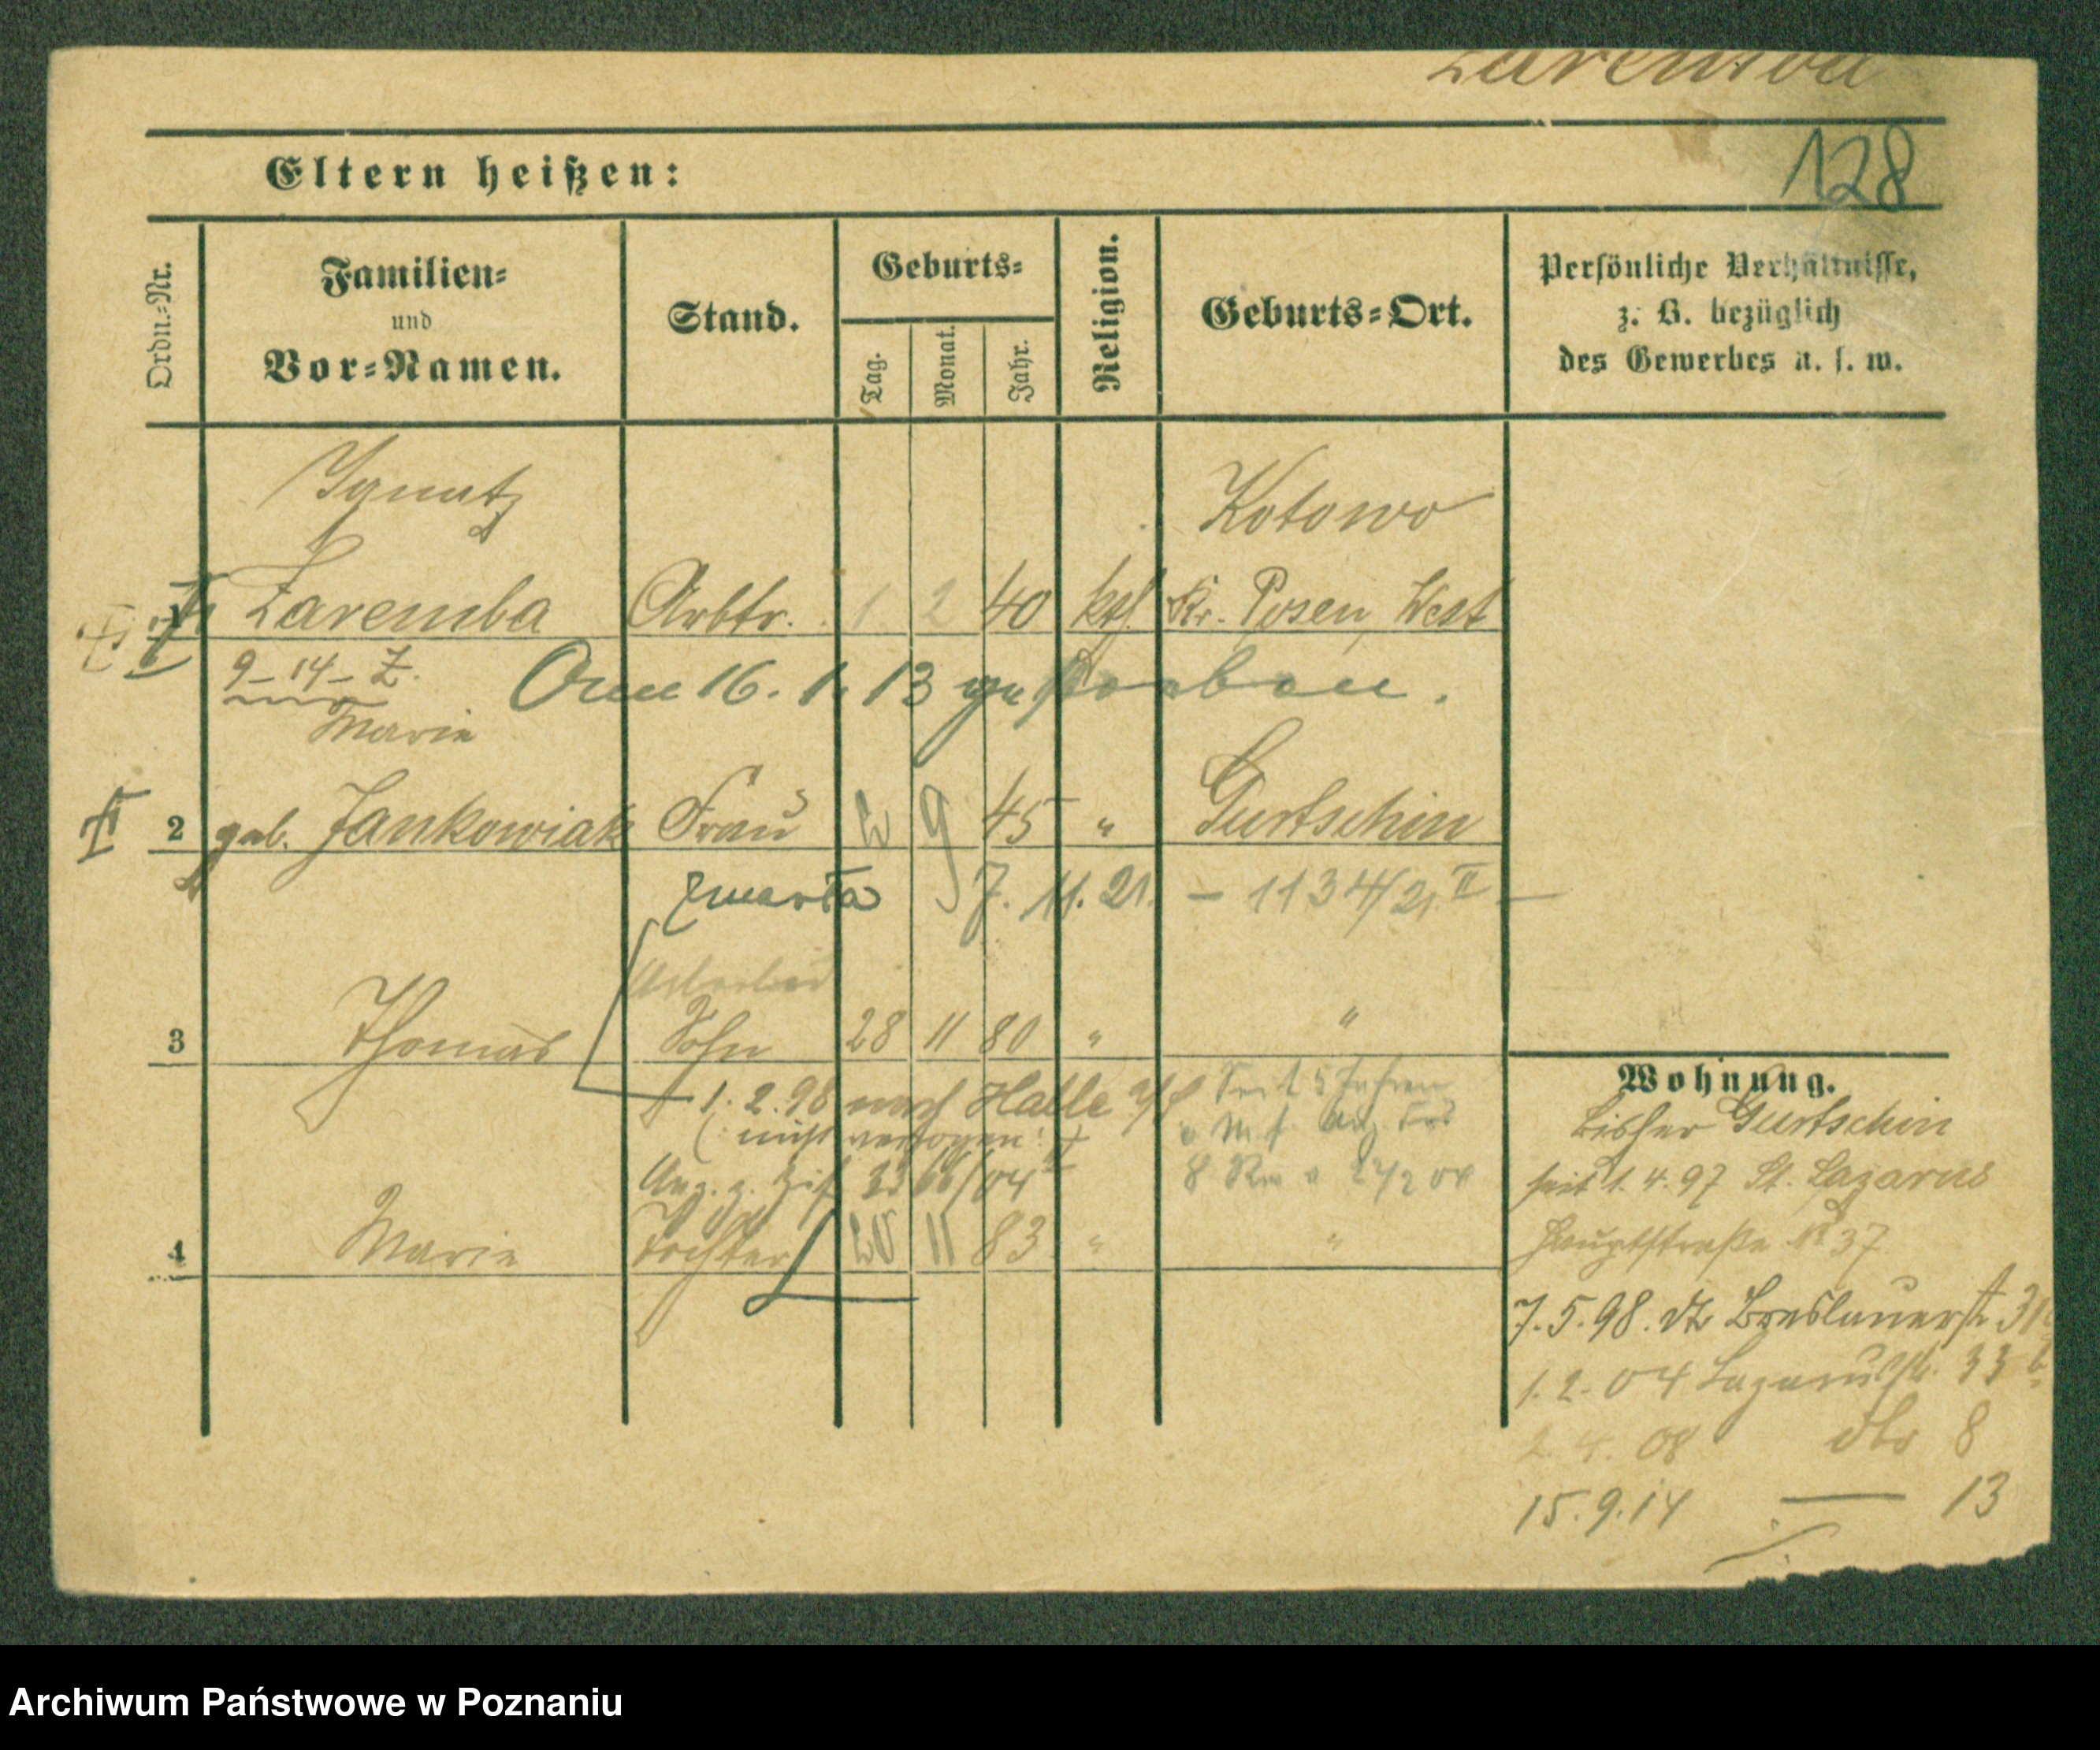 Zaremba
128
Eltern heißen:
Ordn.-Nr.
Familien-
und
Vor-Namen.
Stand.
Geburts-
Tag.
Monat.
Jahr.
Religion.
Geburts-Ort.
Persönliche Verhältnisse,
z. B. bezüglich
des Gewerbes u. s. w.
Ignatz
Kotowo
Zaremba Arbtr. 1 2 40 kth. Kr. Posen West
9-14-Z.
Am 16. 1. 13 gestorben.
Marie
2 geb. Jankowiak Frau 2 9 45 " Gurtschin
zmarła 7. 11. 21. - 1134/21 II -
3 Thomas Sohn 28 11 80 " "
1. 2. 98 nach Halle
(nicht verzogen
Seit 5 Jahren
4 Marie Tochter 20 11 83 " "
Wohnung.
bisher Gurtschin
seit 1. 4. 97 St. Lazarus
Hauptstraße No 37
7. 5. 98. Breslauerstr 31
1. 2. 04 Lazarusstr. 33 b
2. 4. 08 dto 8
15. 9. 14 — 13
Archiwum Państwowe w Poznaniu